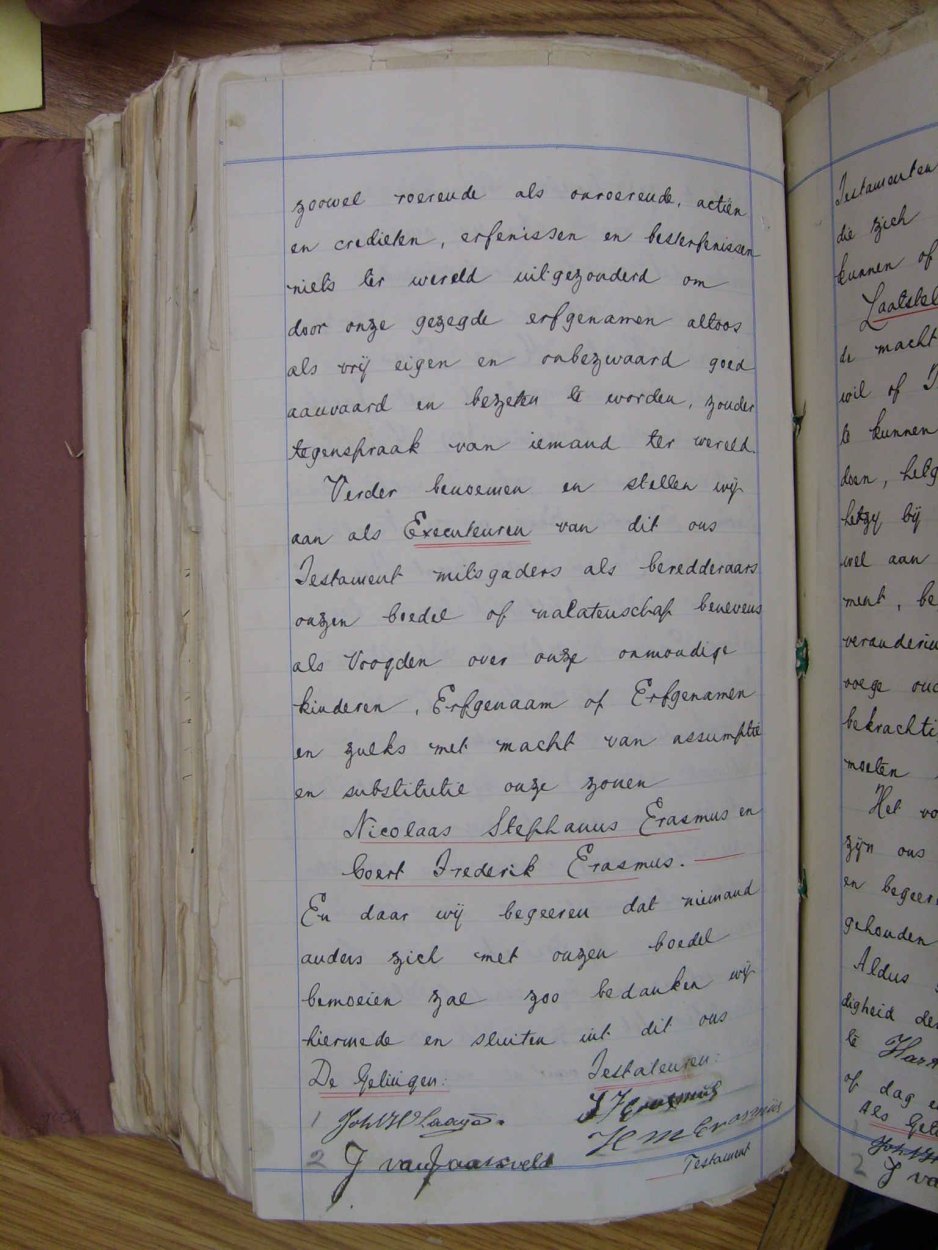 zoowel roerende als onroerende, actiën
en credieten, erfenissen en besterfenissen
niets ter wereld uitgezonderd om
door onze gezegde erfgenamen altoos
als vrij eigen en onbezwaard goed
aanvaard en bezeten te worden, zonder
tegenspraak van iemand ter wereld.
Verder benoemen en stellen wij
aan als Executeuren van dit ons
Testament mitsgaders als beredderaars
onzen boedel of nalatenschap benevens
als Voogden over onze onmondige
kinderen, Erfgenaam of Erfgenamen
en zulks met macht van assumptie
en substitutie onze zonen
Nicolaas Stephanus Erasmus en
Coert Frederik Erasmus.
En daar wij begeeren dat niemand
anders zich met onzen boedel
bemoeien zal zoo bedanken wij
hiermede en sluiten uit dit ons
De Getuigen: Testateuren:
1
H M Erasmus
2 J van Jaarsveld
Testament
Testamenten
die zich
kunnen of
de macht
wil of
te kunnen
doen,
hetzy bij
wel aan
ment, be
voege
bekrachti
moeten
Het vo
zijn ons
en begeer
gehouden
Aldus
digheid der
te
of dag e
Als Get
2 J va